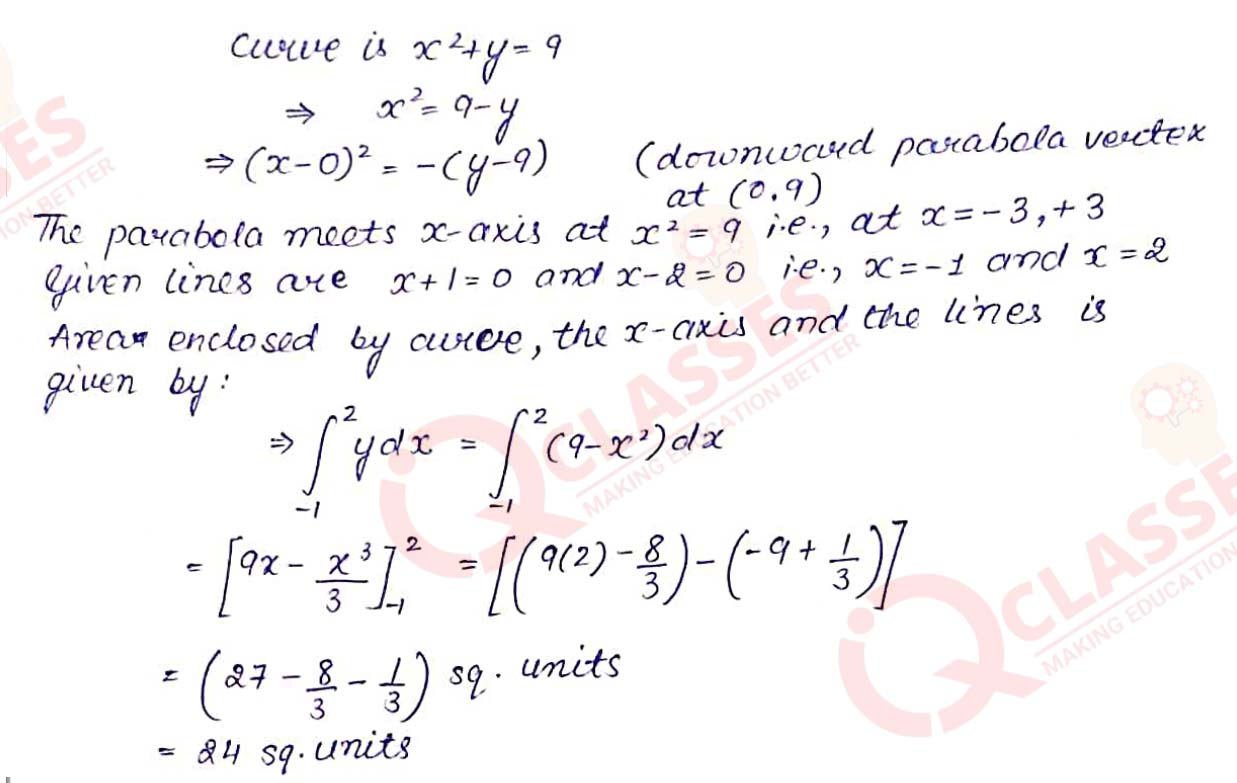 Curve is x²+y=9
⇒ x²=9-y
⇒(x-0)² = -(y-9) (downward parabola vertex
at (0,9)
The parabola meets x-axis at x²=9 i.e., at x=-3,+3
Given lines are x+1=0 and x-2=0 i.e., x=-1 and x=2
Area enclosed by curve, the x-axis and the lines is
given by:
⇒ ∫₋₁² ydx = ∫₋₁² (9-x²)dx
= [9x - x³/3]₋₁² = [(9(2) - 8/3) - (-9 + 1/3)]
= (27 - 8/3 - 1/3) sq. units
= 24 sq. units
ES
ION BETTER
CLASSES
MAKING EDUCATION BETTER
CLASSE
MAKING EDUCATION